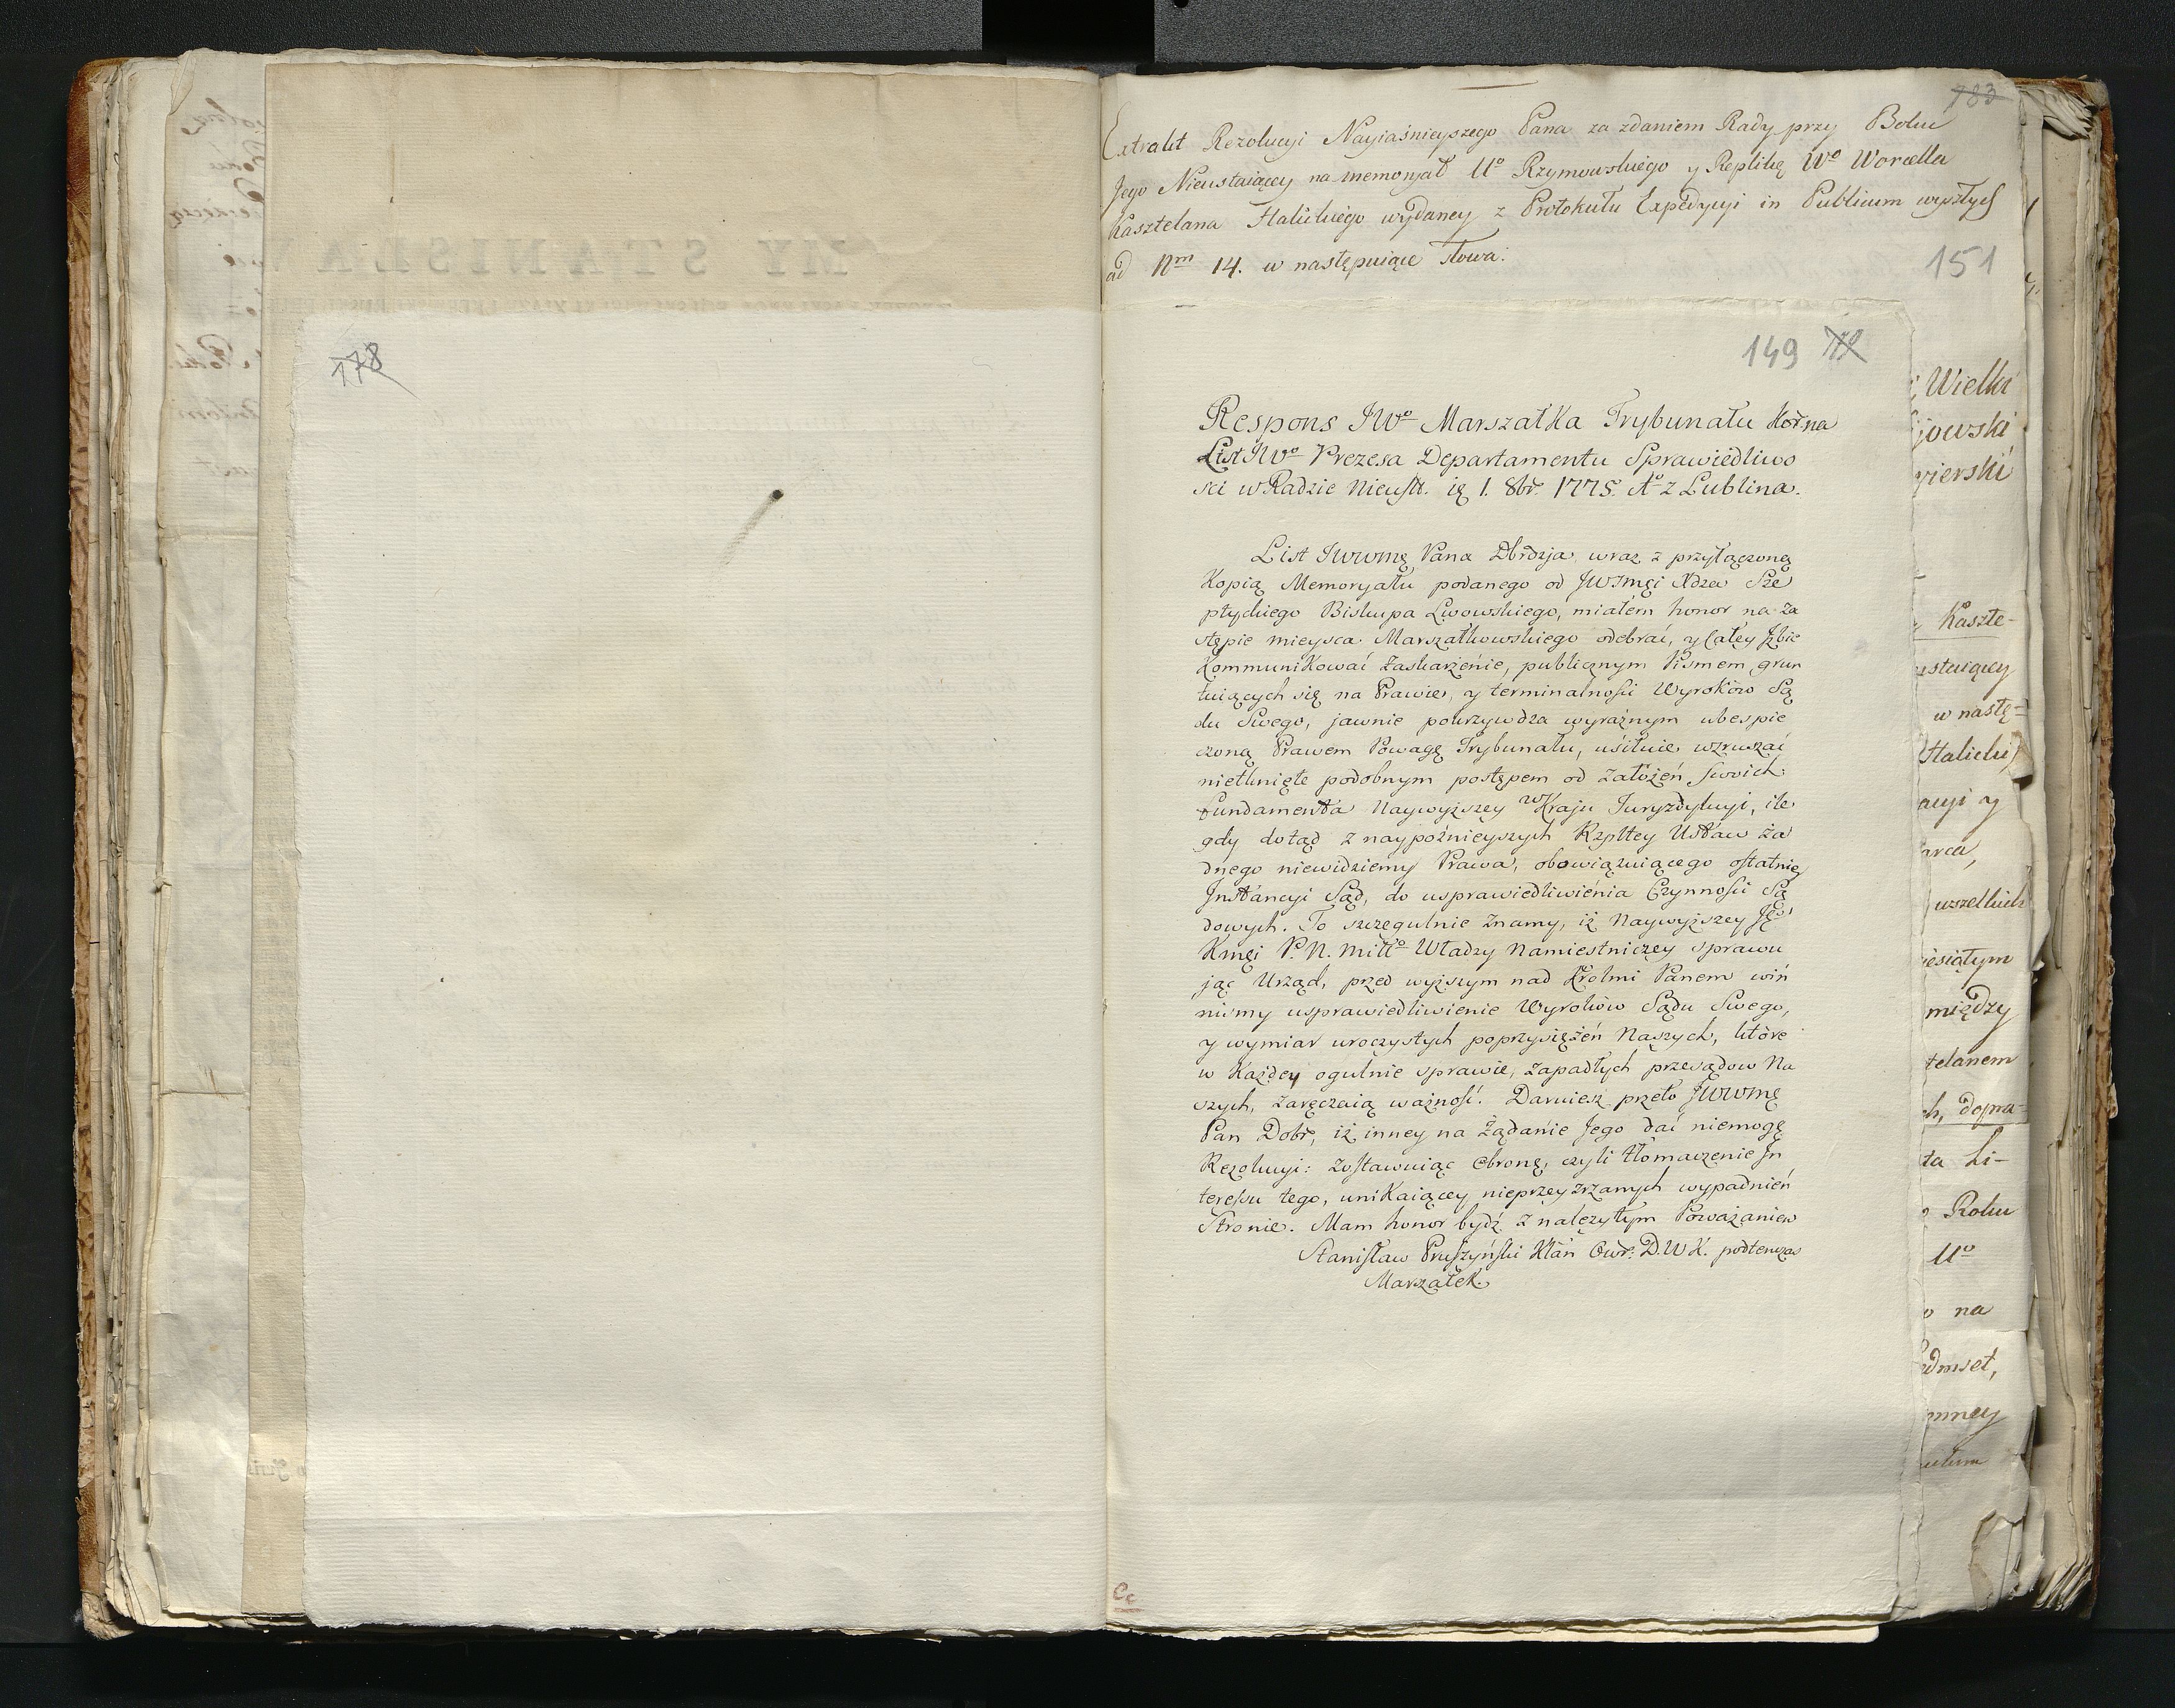 178
183
Extrakt Rezolucyi Nayiaśnieyszego Pana za zdaniem Rady przy Boku
Jego Nieustaiącey na memoryał Uo Rzymowskiego y Replikę Wo Worcella
Kasztelana Halickiego wydaney z Protokułu Expedycyi in Publicum wyszłych
ad Nm 14. w następuiące słowa:
151
149
Respons JWo Marszałka Trybunału Kor: na
List JWo Prezesa Departamentu Sprawiedliwo
sci w Radzie Nieust. ię 1. 8br. 1775. Ao z Lublina.
List JWWmę Pana Dbrdzja wraz z przyłączoną
Kopią Memoryału podanego od JWJmęi Xdza Sze
ptyckiego Biskupa Lwowskiego, miałem honor na za
stępie mieysca Marszałkowskiego odebrać, y całey Jzbie
Kommunikować Zaskarżenie, publicznym Pismem, grun
tuiących się na Prawie, y terminalnosci Wyroków Są
du Swego, jawnie pokrzywdza wyraźnym ubespie
czoną Prawem Powagę Trybunału, uśiłuie wzruszać
nietknięte podobnym postępem od założeń swoich
fundamenta Naywyższey w Kraju Juryzdykcyi, ile
gdy dotąd z naypoźnieyszych Rzpltey Ustaw ża
dnego niewidziemy Prawa, obowiązuiącego ostatniey
Jnstancyi Sąd, do usprawiedliwienia Czynnosci Są
dowych. To szczegulnie znamy, iż Naywyższey Jgo
Kmęi P. N. Miłło Władzy Namiestniczey sprawu
jąc Urząd, przed wyższym nad Krolmi Panem win
nismy usprawiedliwienie Wyroków Sądu Swego,
y wymiar uroczystych poprzysiężeń Naszych, które
w Każdey ogulnie sprawie, zapadłych przesądow Na
szych, zaręczaią ważność. Daruiesz przeto JWWmę
Pan Dobr, iż inney na Żądanie Jego dać niemogę
Rezolucyi: zostawuiąc obronę, czyli tłomaczenie Jn
teressu tego, unikaiącey nieprzeyzrzanych wypadnień
Stronie. Mam honor bydź z należytym Poważaniem
Stanisław Pruszyński Ktan Owr: D. W K. podtenczas
Marszałek.
Cc
Wielki
jowski
Kaszte-
w nastę=
Halicki
wszelkich
iesiątym
między
telanem
h, dopra-
ta Li-
Roku
Uo
na